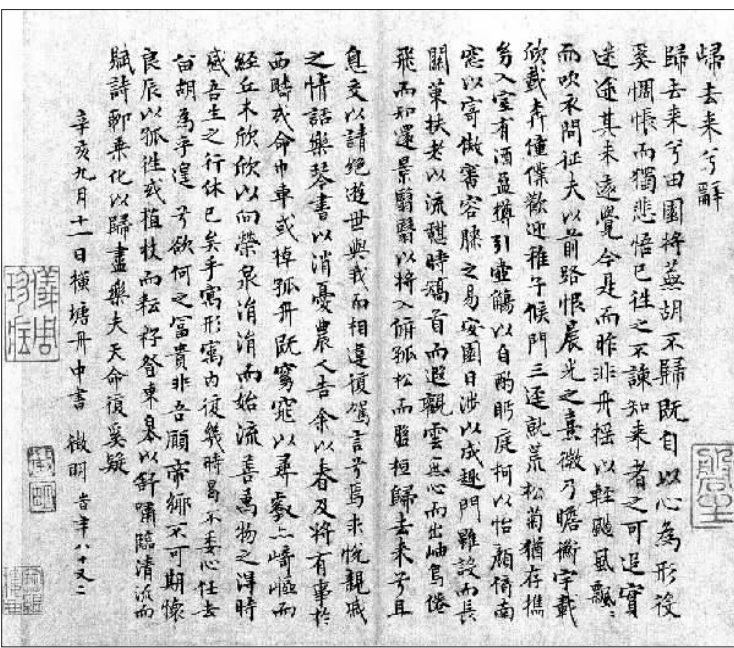 歸去来兮辭
歸去来兮田園将蕪胡不歸既自以心為形役
奚惆悵而獨悲悟已往之不諫知来者之可追實
迷途其未遠覺今是而昨非舟摇以輕颺風飄〻
而吹衣問征夫以前路恨晨光之熹微乃瞻衡宇載
欣載奔僮僕歡迎稚子候門三逕就荒松菊猶存携
幼入室有酒盈樽引壺觴以自酌眄庭柯以怡顔倚南
窓以寄傲審容膝之易安園日涉以成趣門雖設而長
關策扶老以流憩時矯首而遐觀雲無心而出岫鳥倦
飛而知還景翳翳以将入孤松而盤桓歸去来兮且
息交以請絶遊世與我而相違復駕言兮焉求悦親戚
之情話樂琴書以消憂農人告余以春及将有事於
西疇或命巾車或棹孤舟既窈窕以尋壑亦崎嶇而
經丘木欣欣以向榮泉涓涓而始流善萬物之得時
感吾生之行休已矣乎寓形寓内復幾時曷不委心任去
留胡為乎遑兮欲何之富貴非吾願帝鄉不可期懷
良辰以孤往或植杖而耘耔登東皋以舒嘯臨清流而
賦詩聊乘化以歸盡樂夫天命復奚疑
辛亥九月十一日横塘舟中書 徵明 旹年八十又二